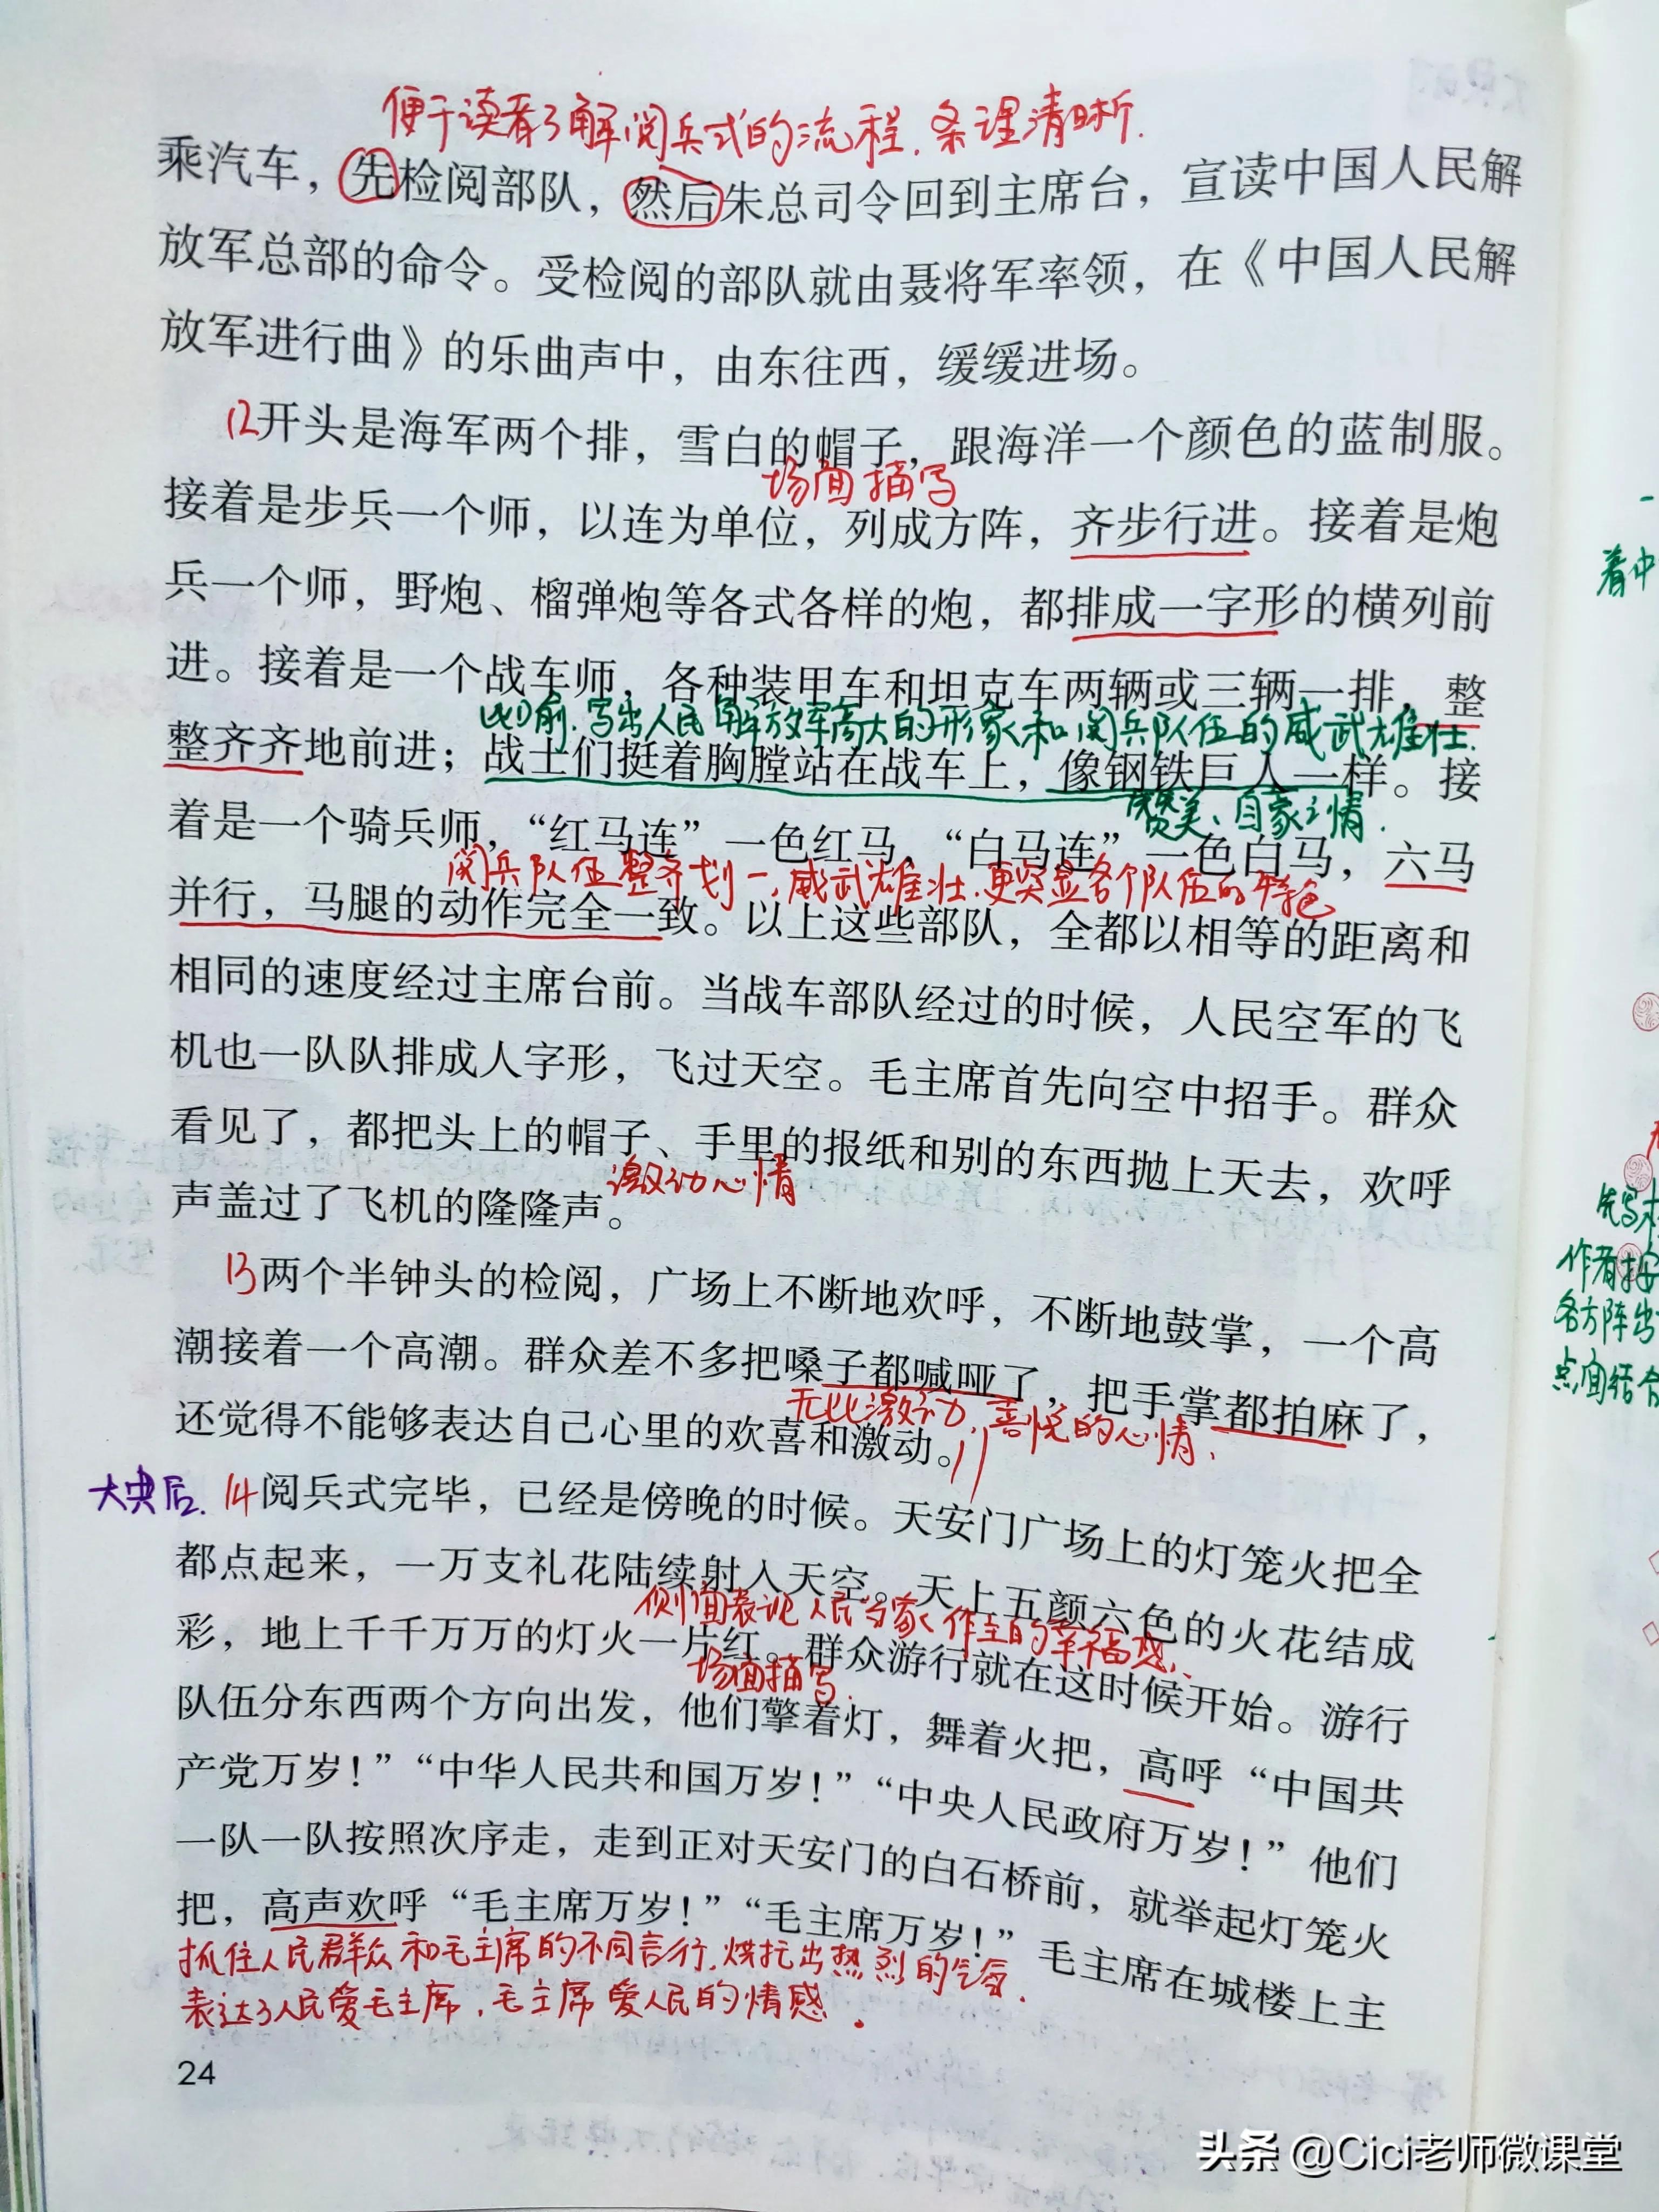 便于读者了解阅兵式的流程，条理清晰.
乘汽车，先检阅部队，然后朱总司令回到主席台，宣读中国人民解
放军总部的命令。受检阅的部队就由聂将军率领，在《中国人民解
放军进行曲》的乐曲声中，由东往西，缓缓进场。
12开头是海军两个排，雪白的帽子，跟海洋一个颜色的蓝制服。
场面描写
接着是步兵一个师，以连为单位，列成方阵，齐步行进。接着是炮
兵一个师，野炮、榴弹炮等各式各样的炮，都排成一字形的横列前
进。接着是一个战车师，各种装甲车和坦克车两辆或三辆一排，整
比喻，写出人民解放军高大的形象和阅兵队伍的威武雄壮.
整齐齐地前进；战士们挺着胸膛站在战车上，像钢铁巨人一样。接
赞美、自豪之情.
着是一个骑兵师，“红马连”一色红马，“白马连”一色白马，六马
阅兵队伍整齐划一，威武雄壮.更突显各个队伍的特色
并行，马腿的动作完全一致。以上这些部队，全都以相等的距离和
相同的速度经过主席台前。当战车部队经过的时候，人民空军的飞
机也一队队排成人字形，飞过天空。毛主席首先向空中招手。群众
看见了，都把头上的帽子、手里的报纸和别的东西抛上天去，欢呼
激动心情
声盖过了飞机的隆隆声。
13两个半钟头的检阅，广场上不断地欢呼，不断地鼓掌，一个高
潮接着一个高潮。群众差不多把嗓子都喊哑了，把手掌都拍麻了，
无比激动，喜悦的心情.
还觉得不能够表达自己心里的欢喜和激动。
大典后. 14阅兵式完毕，已经是傍晚的时候。天安门广场上的灯笼火把全
都点起来，一万支礼花陆续射入天空。天上五颜六色的火花结成
侧面表现人民当家作主的幸福感.
彩，地上千千万万的灯火一片红。群众游行就在这时候开始。游行
场面描写.
队伍分东西两个方向出发，他们擎着灯，舞着火把，高呼“中国共
产党万岁！”“中华人民共和国万岁！”“中央人民政府万岁！”他们
一队一队按照次序走，走到正对天安门的白石桥前，就举起灯笼火
把，高声欢呼“毛主席万岁！”“毛主席万岁！”毛主席在城楼上主
抓住人民群众和毛主席的不同言行，烘托出热烈的气氛.
表达了人民爱毛主席，毛主席爱人民的情感.
24
着中
作者按
各方阵出
点面结合
头条 @Cici老师微课堂